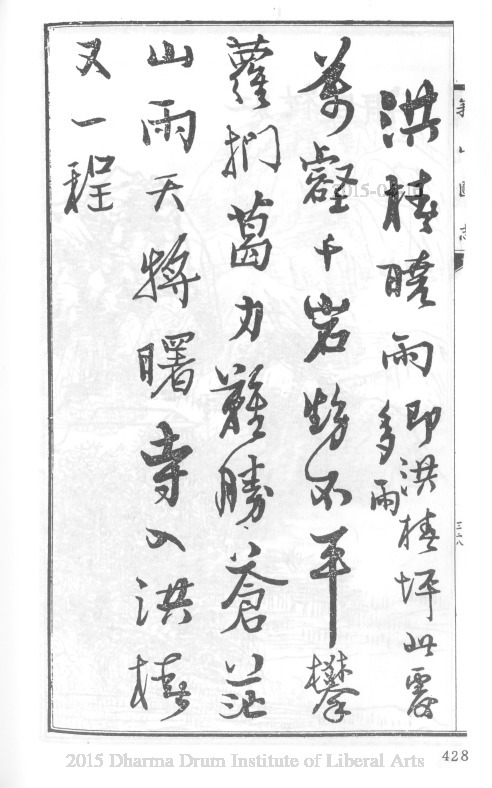 洪椿曉雨 即洪椿坪此處
多雨
萬壑千岩勢不平攀
蘿捫葛力難勝蒼茫
山雨天將曙寺入洪椿
又一程
2015 Dharma Drum Institute of Liberal Arts
428